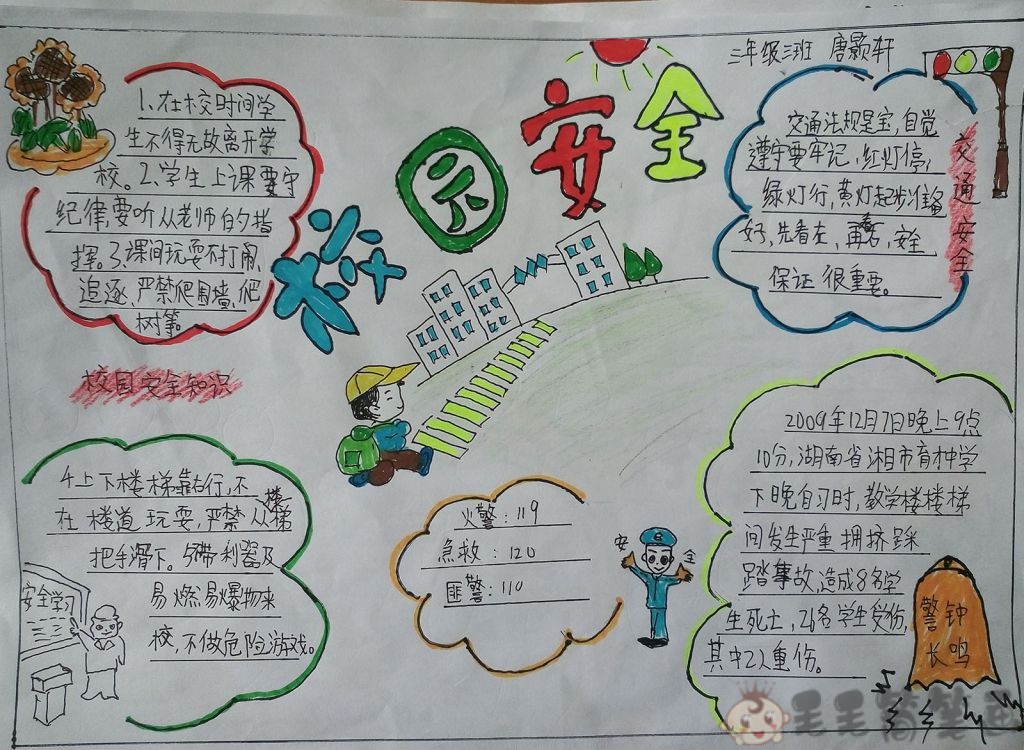 三年级三班 唐颢轩
校园安全
1、在校时间学
生不得无故离开学
校。2、学生上课要守
纪律,要听从老师的指
挥。3、课间玩耍不打闹、
追逐,严禁爬围墙、爬
树等。
交通法规是宝,自觉
遵守要牢记,红灯停,
绿灯行,黄灯起步准备
好,先看左,再看右,安全
保证很重要。
交通安全
校园安全知识
4上下楼梯靠右行,不
在楼道玩耍,严禁从楼梯
把手滑下。5带利器及
易燃易爆物来
校,不做危险游戏。
安全学习
火警:119
急救:120
匪警:110
安全
2009年12月7日晚上9点
10分,湖南省湘市育才中学
下晚自习时,教学楼楼梯
间发生严重拥挤踩
踏事故,造成8名学
生死亡,26名学生受伤,
其中2人重伤。
警钟
长鸣
毛毛简笔画